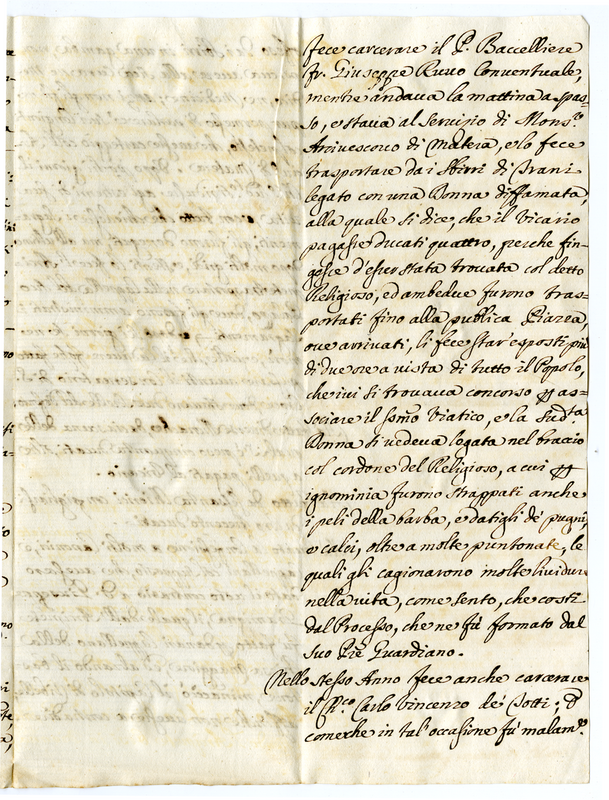 fece carcerare il P. Baccelliere
fr. Giuseppe Ruvo Conventuale,
mentre andava la mattina a spas=
so, e stava al servizio di Mons.re
Arcivescovo di Matera, e lo fece
trasportare da i Sbirri di Trani
legato con una Donna diffamata,
alla quale si dice, che il Vicario
pagasse ducati quattro, perche fin=
gesse d'esser stata trovata col detto
Religioso, ed ambedue furono tras=
portati fino alla publica Piazza,
ove arrivati, li fece star'esposti più
di due ore a vista di tutto il Popolo,
che ivi si trovava concorso p as=
sociare il ssmo Viatico, e la sudta
Donna si vedeva legata nel braccio
col cordone del Religioso, a cui p
ignominia furono strappati anche
i peli della barba, e datigli de' pugni,
e calci, oltre a molte puntonate, le
quali gli cagionarono molte lividure
nella vita, come sento, che costi
dal Processo, che ne fù formato dal
suo Pre Guardiano.
Nello stesso Anno fece anche carcerare
il Carlo Vincenzo de' ; e
come che in tal'occasione fù malam.te